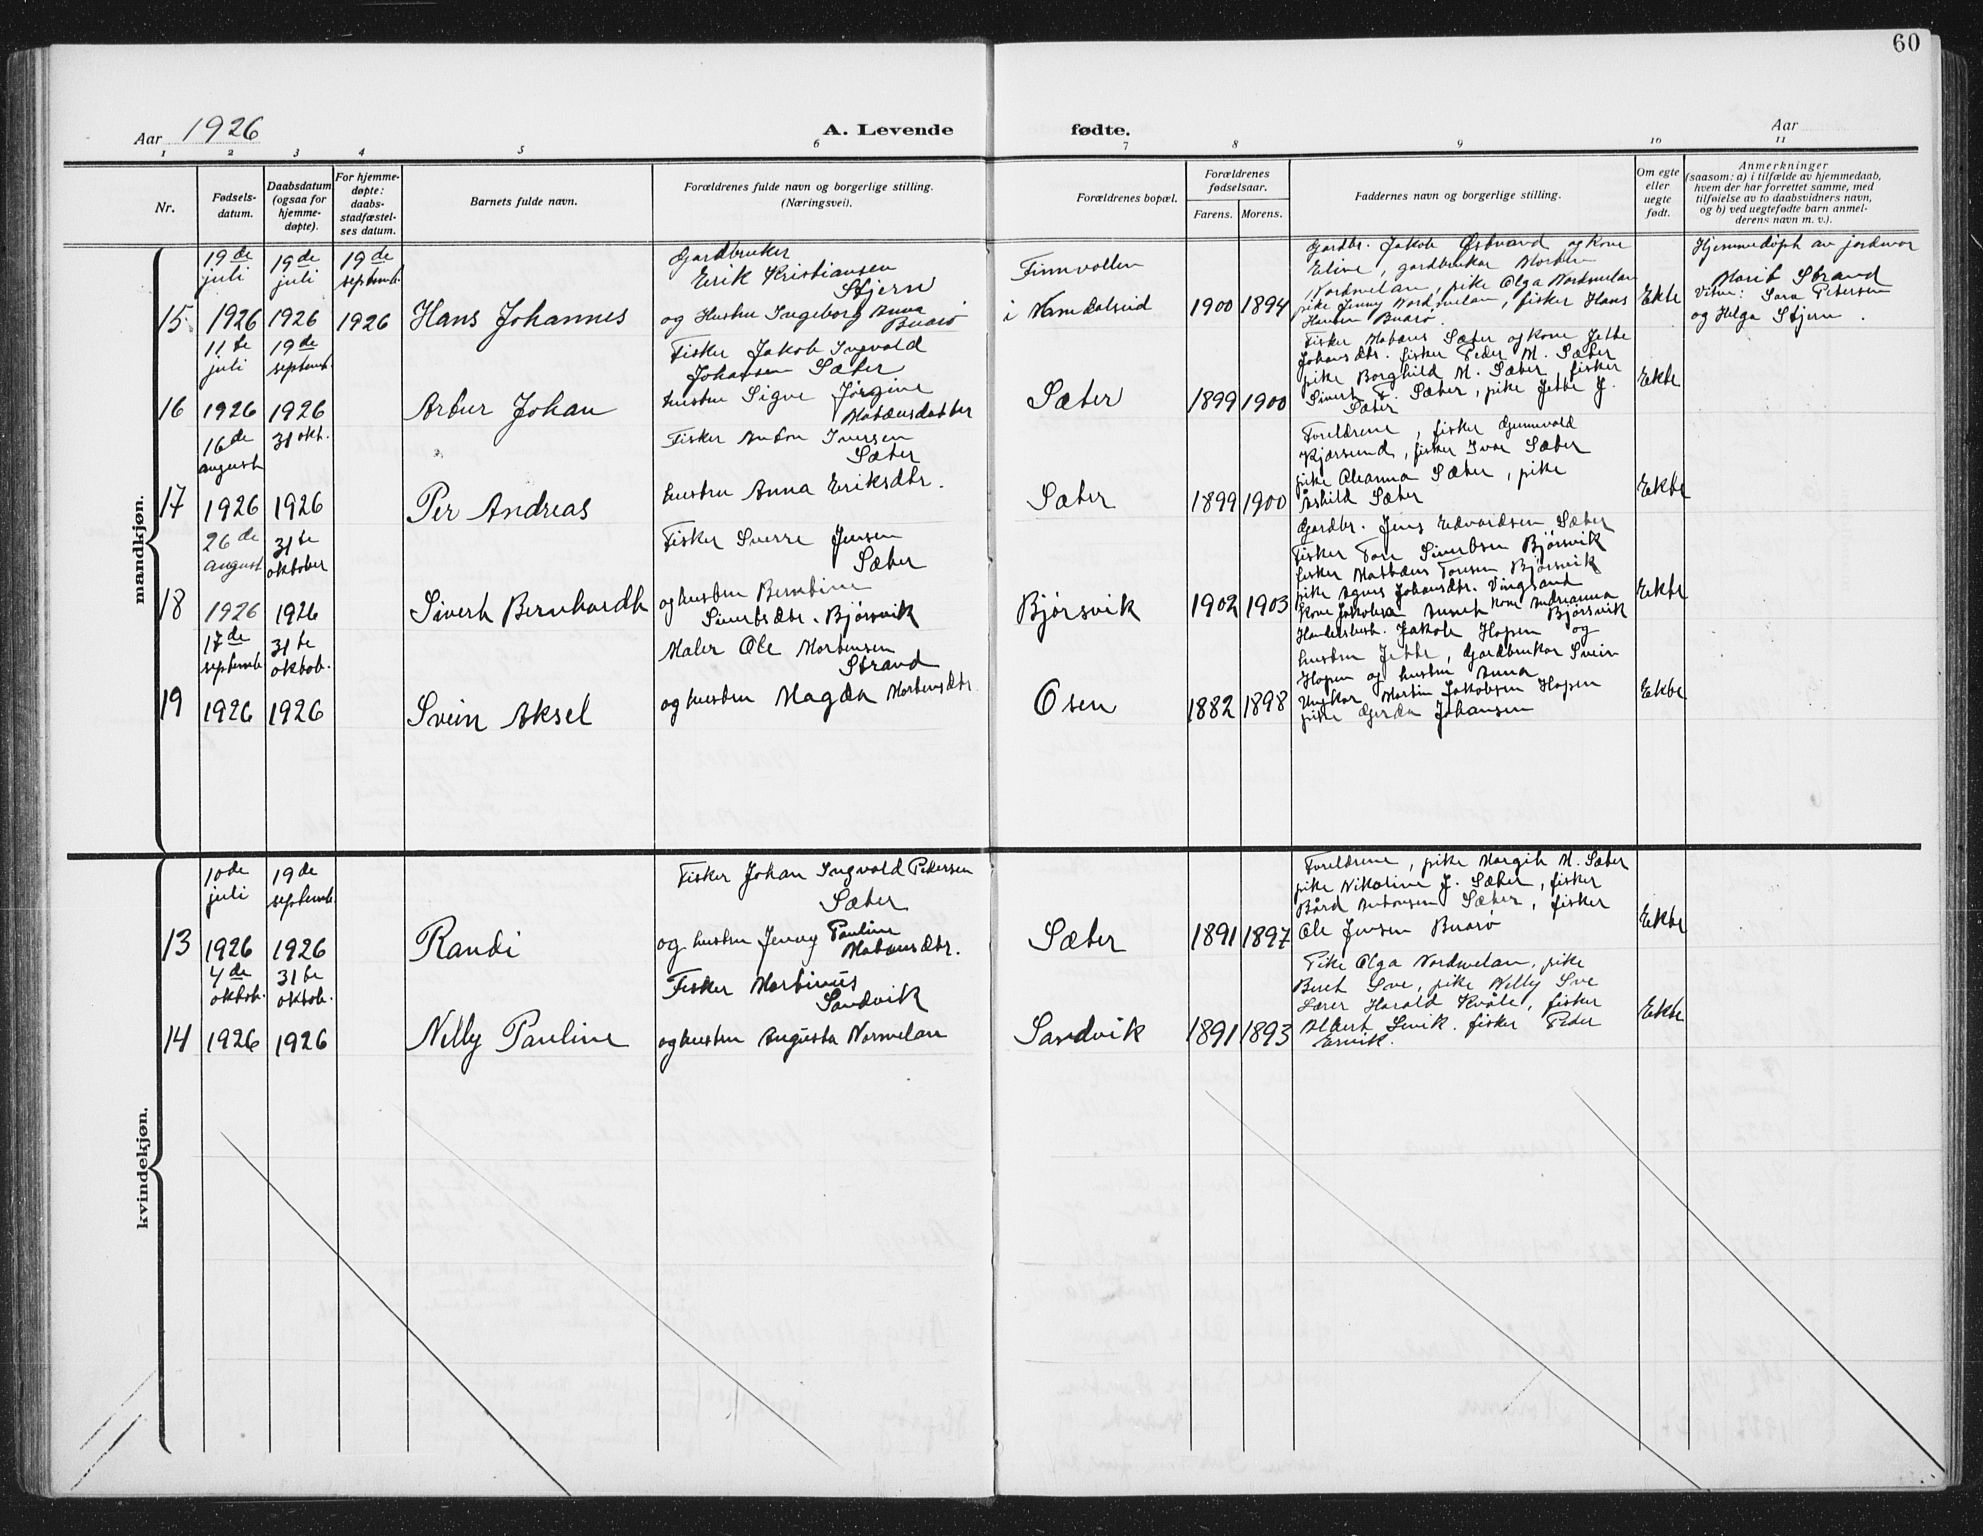 60
Aar 1926
A. Levende fødte.
Aar
1 2 3 4 5 6 7 8 9 10 11
Nr.
Fødsels-
datum.
Daabsdatum
(ogsaa for
hjemme-
døpte).
For hjemme-
døpte:
daabs-
stadfæstel-
ses datum.
Barnets fulde navn.
Forældrenes fulde navn og borgerlige stilling.
(Næringsvei).
Forældrenes bopæl.
Forældrenes
fødselsaar.
Farens. Morens.
Faddernes navn og borgerlige stilling.
Om egte
eller
uegte
født.
Anmerkninger
(saasom: a) i tilfælde av hjemmedaab,
hvem der har forrettet samme, med
tilføielse av to daabsvidners navn,
og b) ved uegtefødte barn anmel-
derens navn m. v.).
mandkjøn.
15
19de
juli
1926
19de
juli
1926
19de
septemb.
1926
Hans Johannes
Gardbruker
Erik Kristiansen
Stjern
og Hustru Ingeborg Anna
Buarø
Finnvollen
i Namdalseid
1900 1894
Gardbr. Jakob Østvand og kone
Eline, gardbruker Morten
Nordmelan, pike Olga Nordmelan
pike Jenny Nordmelan, fisker Hans
Hansen Buarø.
Ekte
Hjemmedøpt av jordmor
Marit Strand
Vitne: Sara Petersen
og Helga Stjern.
16
11te
juli
1926
19de
septemb.
1926
Artur Johan
Fisker Jakob Ingvald
Johansen Sæter
hustru Signe Jørgine
Matæusdatter
Sæter
1899 1900
Fisker Matæus Sæter og kone Jette
Johansdtr. fisker Peder M. Sæter
pike Borghild M. Sæter fisker
Sivert F. Sæter, pike Jette J.
Sæter
Ekte
17
16de
august
1926
31 okt.
1926
Per Andreas
Fisker Anton Iversen
Sæter
hustru Anna Eriksdtr.
Sæter
1899 1900
Foreldrene, fisker Gunnvald
Kjørsund, fisker Ivar Sæter
pike Oleanna Sæter, pike
Åshild Sæter
Ekte
18
26de
august
1926
31te
oktober
1926
Sivert Bernhardt
Fisker Sverre Jensen
Sæter
og hustru Berntine
Sivertsdtr. Bjørsvik
Bjørsvik
1902 1903
Gardbr. Jens Edvardsen Sæter
Fisker Tore Sivertsen Bjørsvik
fisker Mathæus Toresen Bjørsvik
pike Agnes Johansdtr. Vingsand
Kone Jakobea kone Andrianna
Bjørsvik
Ekte
19
17de
septemb.
1926
31te
oktob.
1926
Svein Aksel
Maler Ole Mortensen
Strand
og hustru Magda Mortensdtr.
Osen
1882 1898
Handelsbest. Jakob Hopen og
hustru Jette, Gardbruker Svein
Hopen og hustru Anna
Ungkar Martin Jakobsen Hopen
pike Gerda Johansen
Ekte
kvindekjøn.
13
10de
juli
1926
19de
septemb.
1926
Randi
Fisker Johan Ingvald Pedersen
Sæter
og hustru Jenny Pauline
Matæusdtr.
Sæter
1891 1897
Foreldrene, pike Margit M. Sæter
pike Nikoline J. Sæter, fisker
Bård Antonsen Sæter, fisker
Ole Jensen Buarø
Ekte
14
4de
oktob.
1926
31te
oktob.
1926
Nelly Pauline
Fisker Martinus
Sandvik
og hustru Augusta Normelan
Sandvik
1891 1893
Pike Olga Nordmelan, pike
Beret Sve, pike Nelly Sve
Lærer Harald Kvåle, fisker
Albert fisker Peder
Ervik.
Ekte